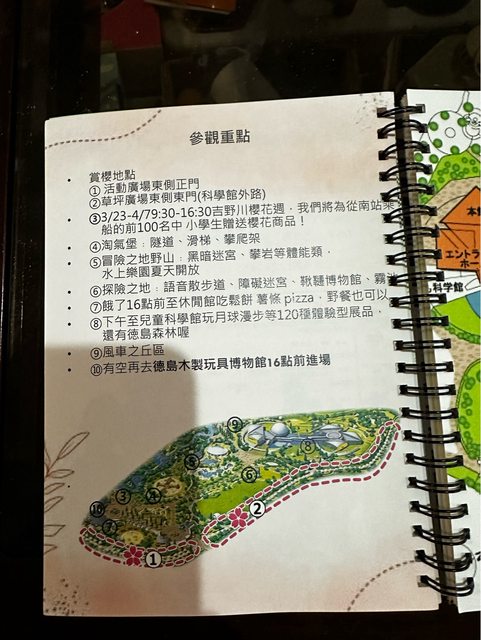 參觀重點
• 賞櫻地點
① 活動廣場東側正門
• ②草坪廣場東側東門(科學館外路)
• ③3/23-4/79:30-16:30吉野川櫻花週，我們將為從南站乘
船的前100名中 小學生贈送櫻花商品！
• ④淘氣堡：隧道、滑梯、攀爬架
• ⑤冒險之地野山：黑暗迷宮、攀岩等體能類，
水上樂園夏天開放
• ⑥探險之地：語音散步道、障礙迷宮、鞦韆博物館、霧
• ⑦餓了16點前至休閒館吃鬆餅 薯條 pizza，野餐也可以
• ⑧下午至兒童科學館玩月球漫步等120種體驗型展品，
還有徳島森林喔
• ⑨風車之丘區
• ⑩有空再去德島木製玩具博物館16點前進場
⑨
⑧
⑥
③
⑩
⑦
②
①
エントラ
ホー
科学館